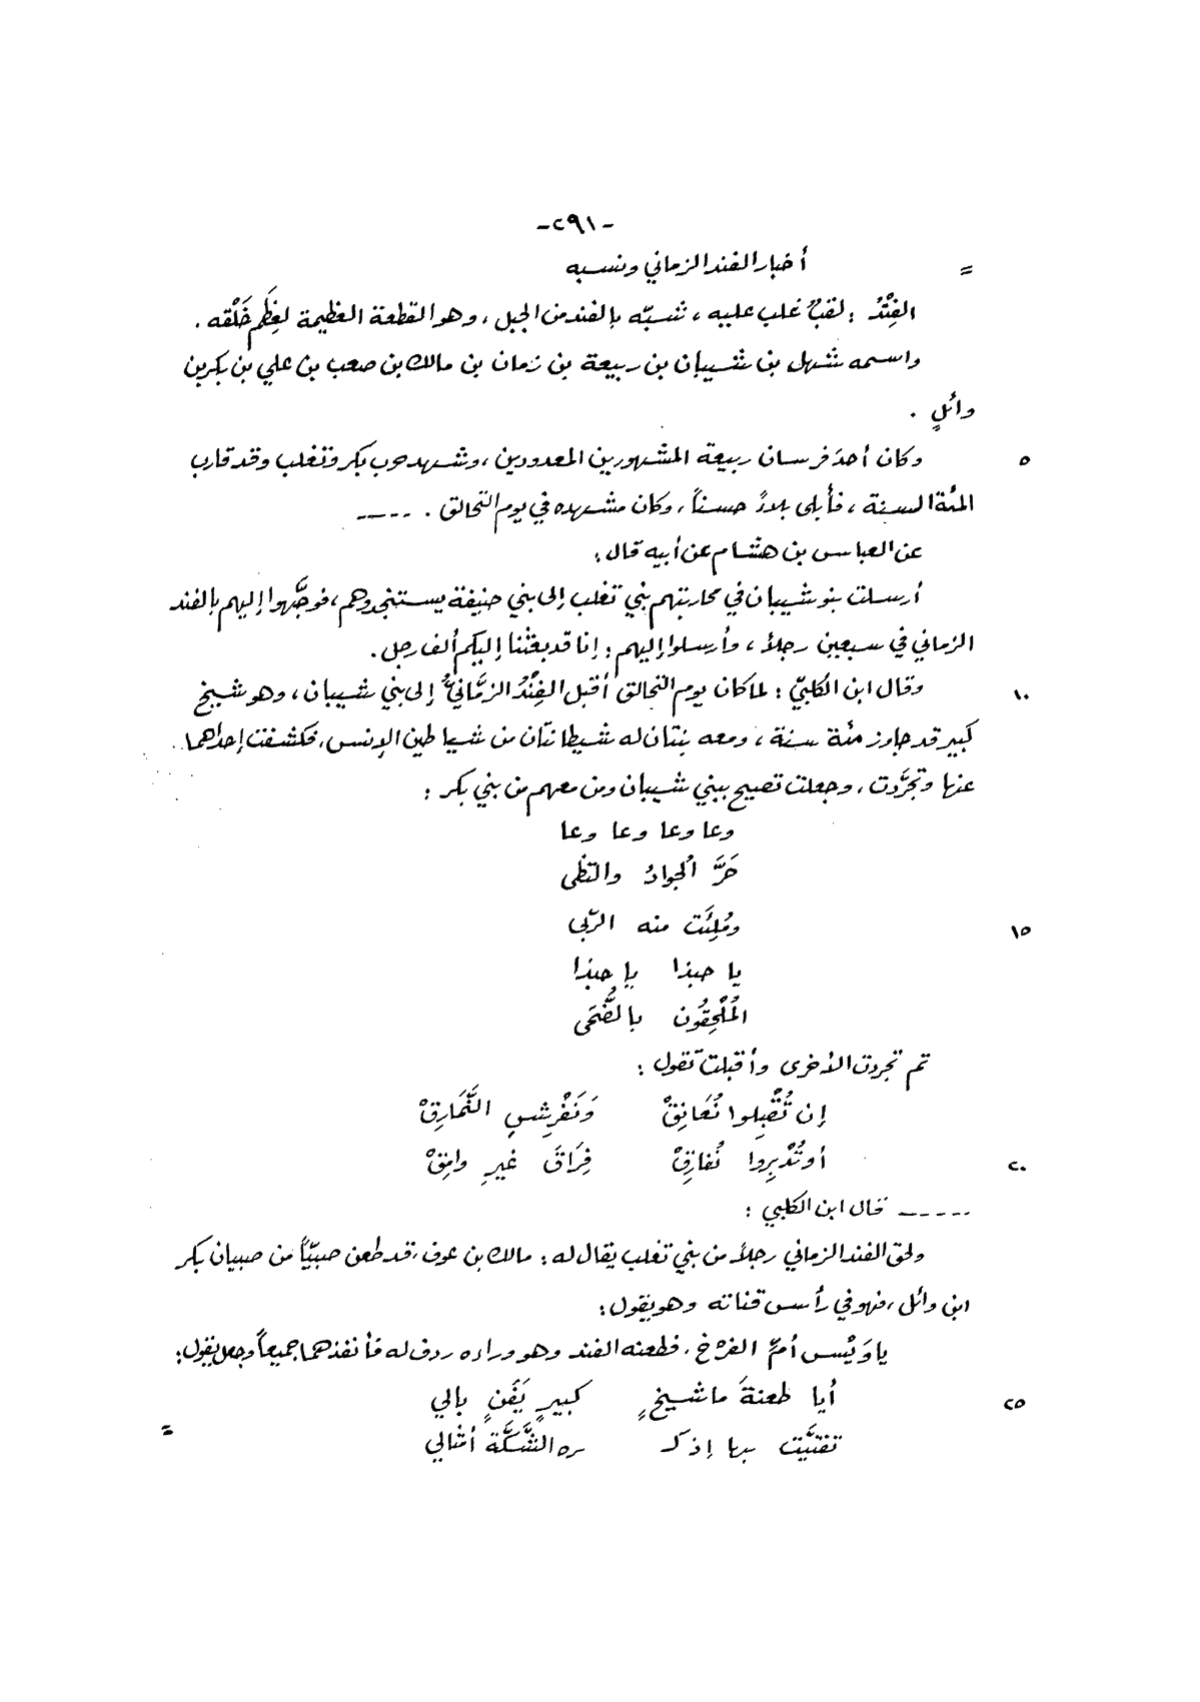 -٢٩١-
= أخبار الفند الزماني ونسبه
الفِنْدُ : لقبٌ غلب عليه ، شبّه بالفند من الجبل ، وهو القطعة العظيمة لعِظَم خَلْقه .
واسمه شهل بن شيبان بن ربيعة بن زمان بن مالك بن صعب بن علي بن بكر بن
وائلٍ .
٥ وكان أحدَ فرسان ربيعة المشهورين المعدودين ، وشهد حرب بكر وتغلب وقد قارب
المئة السنة ، فأبلى بلاءً حسناً ، وكان مشهده في يوم التحالق . -----
عن العباس بن هشام عن أبيه قال :
أرسلت بنو شيبان في محاربتهم بني تغلب إلى بني حنيفة يستنجدوهم ، فوجَّهوا إليهم بالفند
الزماني في سبعين رجلاً ، وأرسلوا إليهم : إنا قد بعثنا إليكم ألف رجل .
١٠ وقال ابن الكلبيّ : لما كان يوم التحالق أقبل الفِنْدُ الزمَّانيُّ إلى بني شيبان ، وهو شيخ
كبير قد جاوز مئة سنة ، ومعه بنتان له شيطانتان من شياطين الإنس ، فكشفت إحداهما
عنها وتجرَّدت ، وجعلت تصيح ببني شيبان ومن معهم من بني بكر :
وعا وعا وعا وعا
حَرَّ الجوادُ والتظى
١٥ ومُلِئَت منه الرّبى
يا حبذا يا حبذا
المُلْحِقُون بالضُّحَى
ثم تجردت الأخرى وأقبلت تقول :
إن تُقْبِلوا نُعَانِقْ وَنَفْرِشِ النَّمَارِقْ
٢٠ أو تُدْبِرِوا نُفارِقْ فِرَاقَ غيرِ وامِقْ
----- قال ابن الكلبي :
ولحق الفند الزماني رجلاً من بني تغلب يقال له : مالك بن عوف ، قد طعن صبيّاً من صبيان بكر
ابن وائل ، فهو في رأس قناته وهو يقول :
يا وَيْس أمَّ الفرْخ ، فطعنه الفند وهو وراءه ردف له فأنفذهما جميعاً وجعل يقول :
٢٥ أيا طعنةَ ما شيخٍ كبيرٍ يَفَنٍ بالي
تفتيَّت بها إذ كـ ـره الشَّكَّةَ أمثالي =